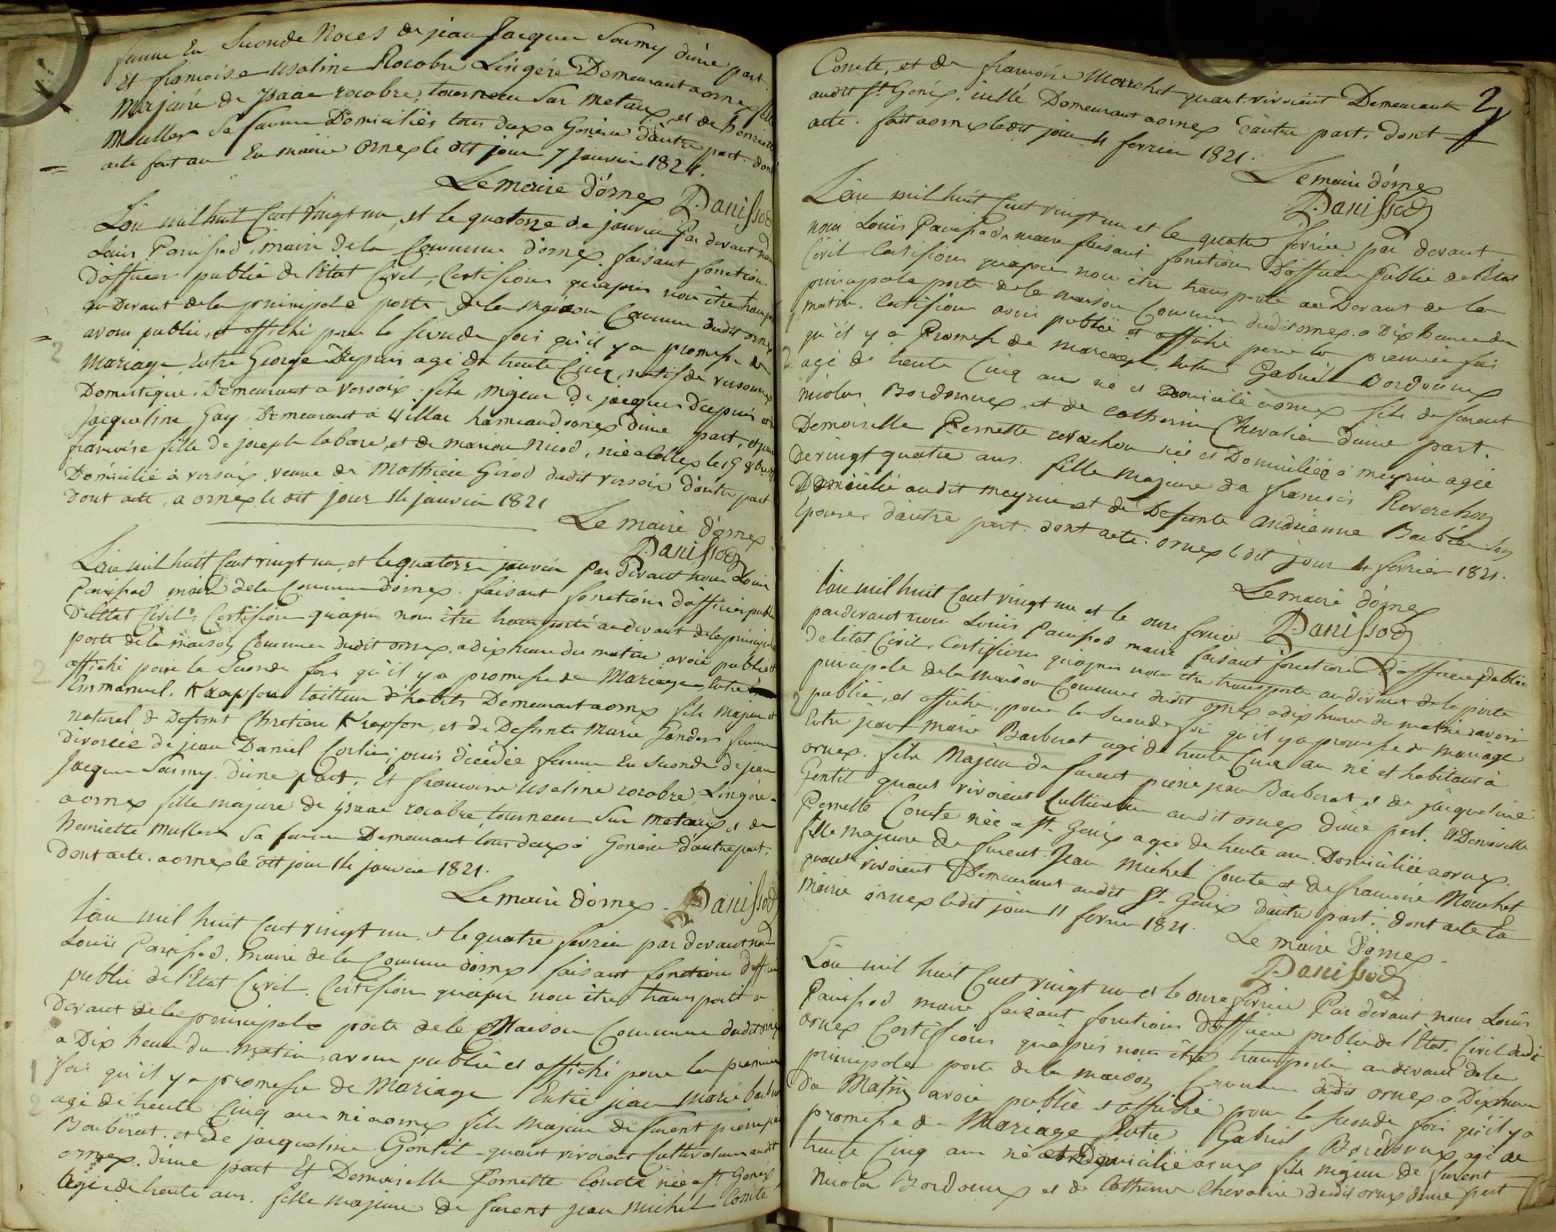 femme En Seconde Noces de jean Jacques Soumy d'une part
Et francoise usaline Rocobre Lingére Demeurant a ornex fille
Majeure de Isaac rocobre, tourneur Sur metaux et de henriette
Muller Sa femme Domiciliés tous deux a Genève d'autre part. dont
acte fait au En mairie Ornex le dit jour 7 janvier 1821.
Le maire d'ornex Panissod
L'an mil huit Cent vingt un, et le quatorze de janvier Par devant nous
Louis Panissod, maire de la Commune d'ornex faisant fonction
d'officier public de l'état Civil, Certifions qu'apres nous être transporté
au Devant de la principale porte de la maison Commune dudit ornex
avons publié, et affiché pour la seconde fois qu'il y a promesse de
Mariage, Entre George Depuis agé de trente Cinq, natif de
Domestique, Demeurant a Versoix. fils majeur de jacques Depuis et
Jacqueline Gay Demeurant à Villar hameau d'ornex d'une part, et
francoise fille de joseph labare et de marion Nicod, née a Collex le 19 8bre
Domicilié à versoix, veuve de Mathieu Girod dudit versoix d'autre part
Dont acte, a ornex le dit jour 14 janvier 1821
Le maire d'ornex.
Panissod
L'an mil huit Cent vingt un, et le quatorze janvier Par devant nous Louis
Panissod maire de la Commune d'ornex. faisant fonctions d'officier public
De l'Etat Civil. Certifions qu'apres nous être transporté au devant de la principale
porte de la maison Commune dudit ornex, a dix heure du matin avoir publié et
affiché pour la Seconde fois qu'il y a promesse de Mariage, Entre
2
Emmanuel Krapfou tailleur d'habits Demeurant a ornex fils majeur et
naturel de Defunt Chretien Krapfon, et de Defunte Marie Sanders femme
divorcée de jean Daniel Cortin, puis décédée femme En Seconde de jean
Jacques Soumy. d'une part, Et francoise usaline rocobre, Lingère
a ornex fille majeure de Isaac rocobre tourneur Sur metaux et de
henriette muller Sa femme Demeurant tous deux a Genève d'autre part.
Dont acte. a ornex le dit jour 14 janvier 1821.
Le maire d'ornex. Panissod
L'an mil huit Cent vingt un, et le quatre fevrier par devant nous
Louis Panissod. Maire de la Commune d'ornex faisant fonction d'officier
public de l'Etat Civil. Certifions qu'apres nous être transporté a
Devant de la principale porte de la Maison Commune dudit ornex
a Dix heure du matin avoir publié et affiché pour la premiere
1
fois qu'il y a promesse de Mariage Entre jean marie
2
agé de trente Cinq ans né a ornex fils majeur de furent pierre jean
Barberat. et de jacqueline Gentil quant vivoient Cultivateur audit
ornex. d'une part Et Demoiselle Pernette Comte née a St. Genix
Agée de trente ans. fille majeure de furent jean michel Comte
2
Comte, et de francoise Mouchet quant vivoient Demeurant
audit St. Genix. icelle Demeurant a ornex d'autre part. dont
acte. fait a ornex le dit jour 4 fevrier 1821.
Le maire d'ornex
Panissod
L'an mil huit Cent vingt un et le quatre fevrier par devant
nous Louis Panissod maire faisant fonction D'officier Public de l'Etat
Civil. Certifions qu'apres nous être transporté au Devant de la
principale porte de la maison Commune dudit ornex. a Dix heures du
matin. Certifions avoir publié et affiché pour la premiere fois
qu'il y a Promesse de mariage, Entre Gabriel Bordoneux
agé de trente Cinq ans né et Domicilié a ornex fils de furent
Nicolas Bordoneux et de Catherine Chevalier d'une part.
Demoiselle Pernette Reverchon née et Domiciliée a meyrin agée
De vingt quatre ans. fille majeure de francois Reverchon
Domicilié audit meyrin et de Defunte Andrienne Barbier Son
Epouse, d'autre part. dont acte. ornex le dit jour 4 fevrier 1821.
Le maire d'ornex
L'an mil huit Cent vingt un et le onze fevrier Panissod
pardevant nous Louis Panissod maire faisant fonction D'officier public
de l'état Civil, Certifions qu'apres nous être transporté au devant de la porte
principale de la Maison Commune dudit ornex a dix heure de matin avoir
2
publié, et affiché, pour la Seconde foi qu'il y a promesse de mariage
Entre jean marie Barberat agé de trente Cinq an né et habitant à
ornex. fils Majeur de furent pierre jean Barberat et de jacqueline
Gentil quant vivoient Cultivateur audit ornex d'une part. Et Demoiselle
Pernette Comte née a St. Genix agée de trente an. Domiciliée a ornex.
fille majeure de furent Jean Michel Comte et de francoise Mouchet
quant vivoient Demeurant audit St. Genix d'autre part, dont acte En
Mairie ornex le dit jour 11 fevrier 1821.
Le maire d'ornex.
Panissod
L'an mil huit Cent vingt un et le onze fevrier Par devant nous Louis
Panissod maire faisant fonctions d'officier public de l'Etat Civil dudit
ornex Certifions qu'apres nous être transporté au devant de la
principale porte de la maison Commune dudit ornex a Dix heure
Du Matin avoir publié et affiché pour la Seconde fois qu'il y a
promesse de Mariage Entre Gabriel Bordoneux agé de
trente Cinq an né et Domicilié a ornex fils majeur de furent
Nicolas Bordoneux et de Catherine Chevalier dudit ornex d'une part